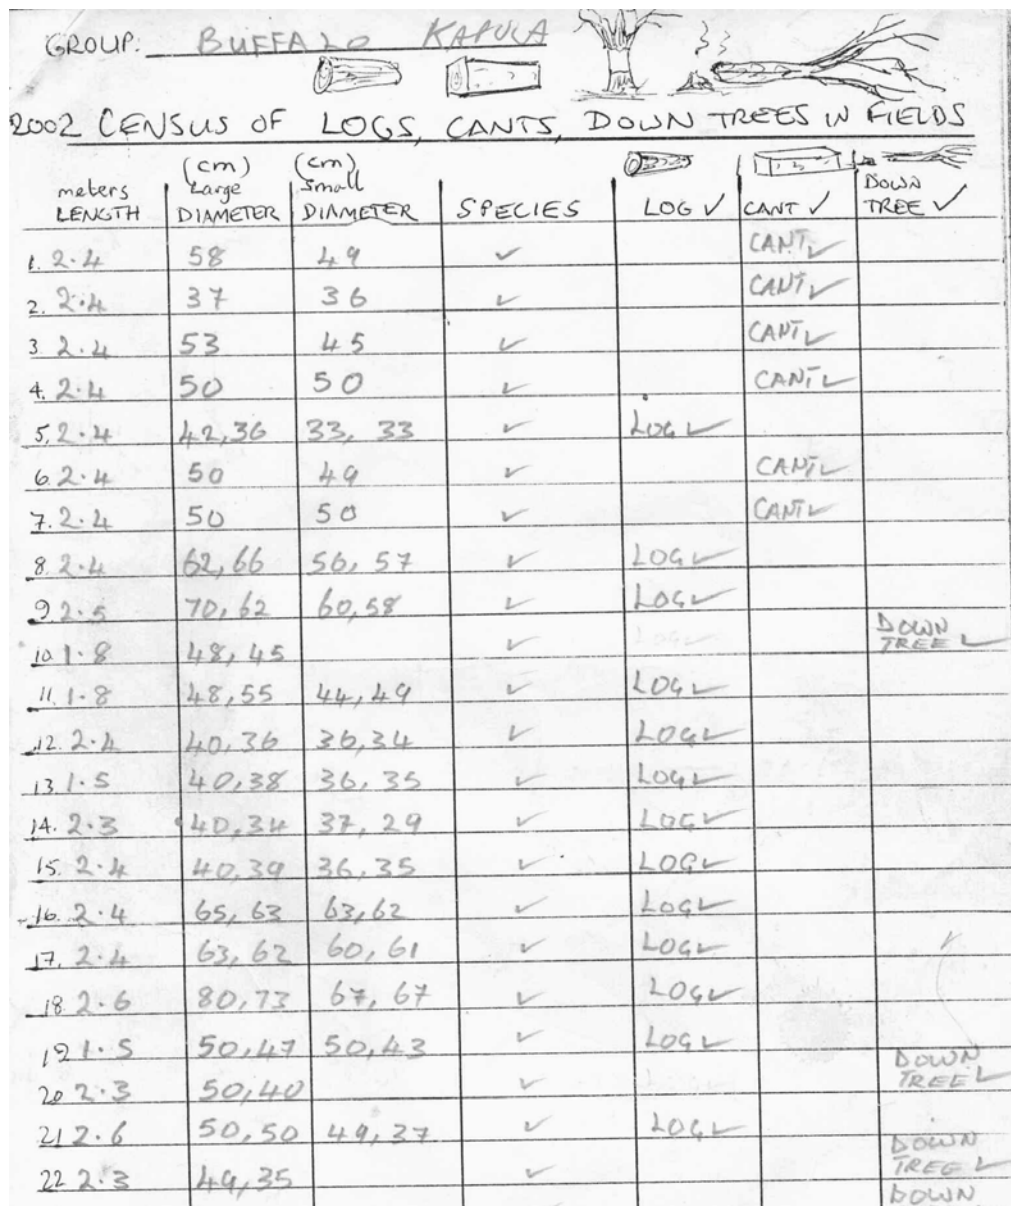 GROUP: BUFFALO KAPULA
2002 CENSUS OF LOGS, CANTS, DOWN TREES IN FIELDS
meters LENGTH (cm) Large DIAMETER (cm) Small DIAMETER SPECIES LOG ✓ CANT ✓ DOWN TREE ✓
1. 2.4 58 49 ✓ CANT ✓
2. 2.4 37 36 ✓ CANT ✓
3. 2.4 53 45 ✓ CANT ✓
4. 2.4 50 50 ✓ CANT ✓
5. 2.4 42,36 33, 33 ✓ LOG ✓
6. 2.4 50 49 ✓ CANT ✓
7. 2.4 50 50 ✓ CANT ✓
8. 2.4 62,66 56, 57 ✓ LOG ✓
9 2.5 70,62 60,58 ✓ LOG ✓
10 1.8 48,45 ✓ LOG ✓ DOWN TREE ✓
11. 1.8 48,55 44,49 ✓ LOG ✓
12. 2.4 40,36 36,34 ✓ LOG ✓
13. 1.5 40,38 36, 35 ✓ LOG ✓
14. 2.3 40,34 37, 29 ✓ LOG ✓
15. 2.4 40,39 36,35 ✓ LOG ✓
16. 2.4 65, 63 63,62 ✓ LOG ✓
17. 2.4 63, 62 60, 61 ✓ LOG ✓
18 2.6 80,73 67, 67 ✓ LOG ✓
19 1.5 50,47 50,43 ✓ LOG ✓
20 2.3 50,40 ✓ DOWN TREE ✓
21 2.6 50,50 49,37 ✓ LOG ✓
22 2.3 49,35 ✓ DOWN TREE ✓
DOWN